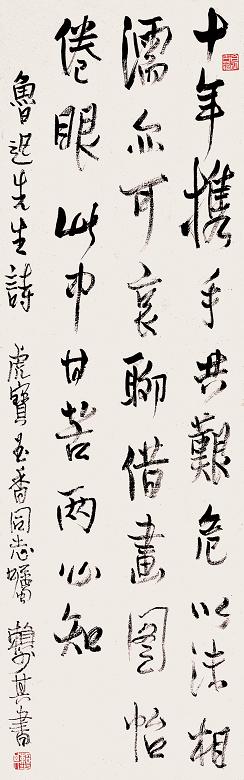 十年攜手共艱危以沫相
濡亦可哀聊借畫圖怡
倦眼此中甘苦兩心知
魯迅先生詩 虎寶玉香同志囑 賴少其書